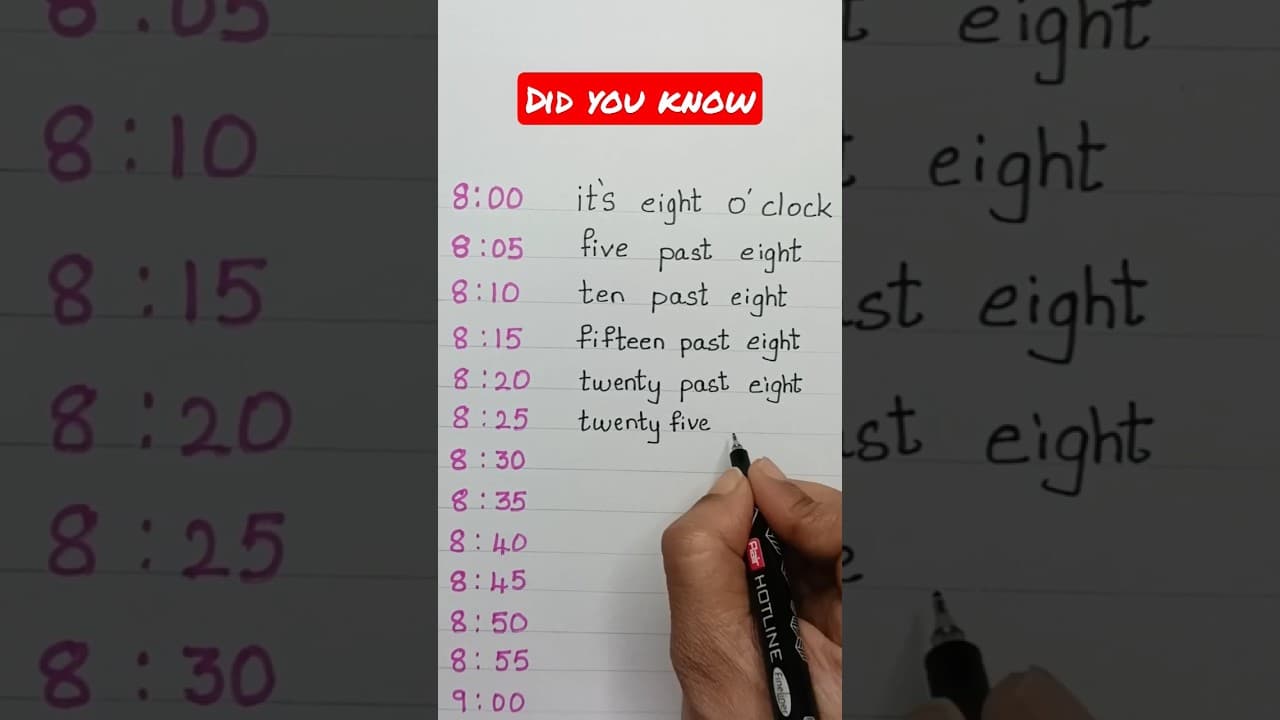 DID YOU KNOW
8:00 it's eight o'clock
8:05 five past eight
8:10 ten past eight
8:15 fifteen past eight
8:20 twenty past eight
8:25 twenty five
8:30
8:35
8:40
8:45
8:50
8:55
9:00
Flair HOTLINE Fineliner
8:05 eight
8:10 eight
8:15 st eight
8:20 st eight
8:25 e
8:30